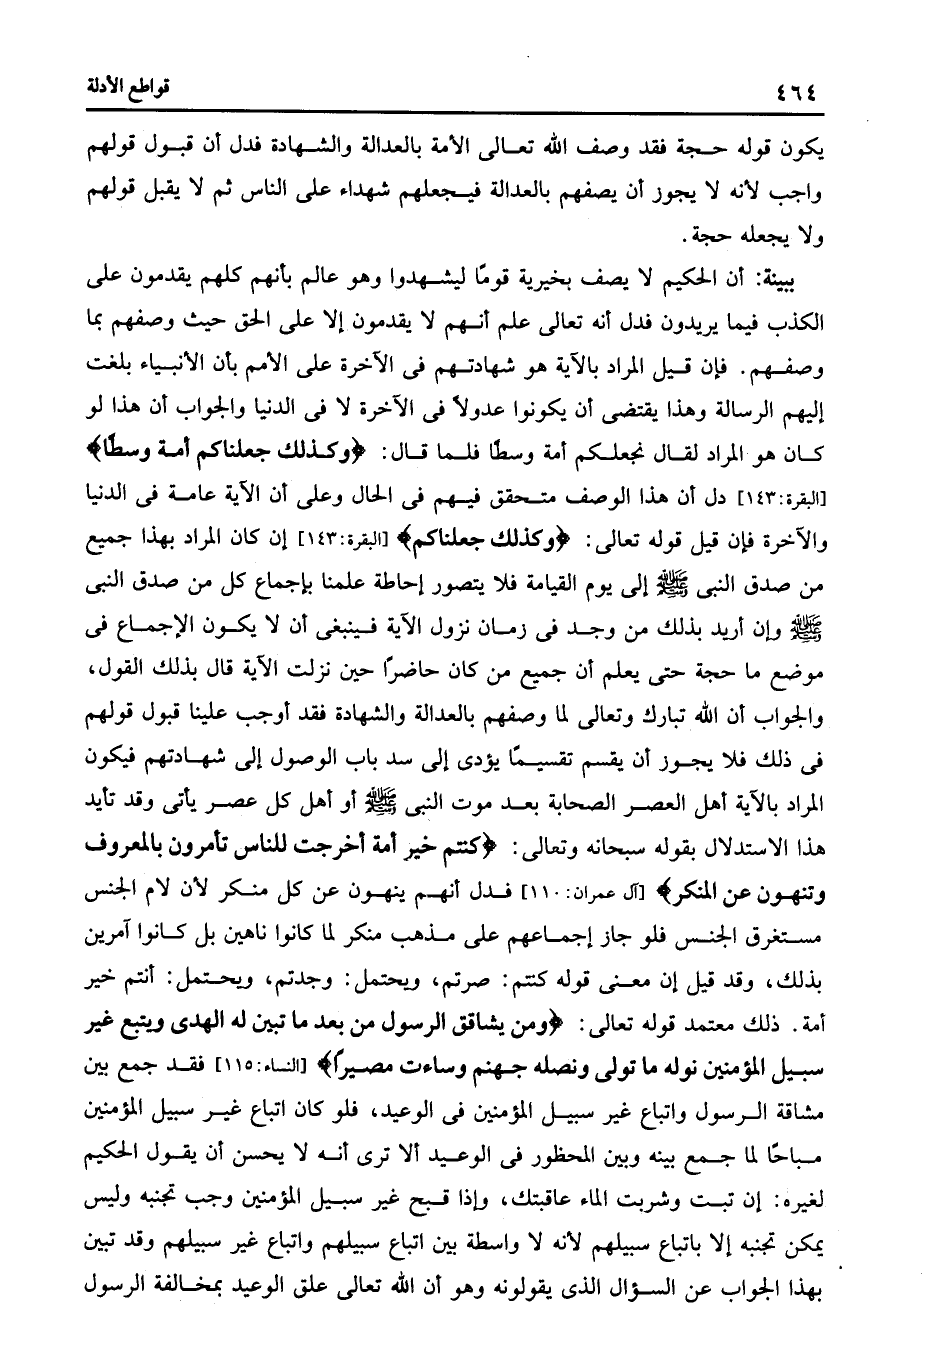 ٤٦٤
قواطع الأدلة
يكون قوله حجة فقد وصف الله تعالى الأمة بالعدالة والشهادة فدل أن قبول قولهم
واجب لأنه لا يجوز أن يصفهم بالعدالة فيجعلهم شهداء على الناس ثم لا يقبل قولهم
ولا يجعله حجة.
ببينة: أن الحكيم لا يصف بخيرية قومًا ليشهدوا وهو عالم بأنهم كلهم يقدمون على
الكذب فيما يريدون فدل أنه تعالى علم أنهم لا يقدمون إلا على الحق حيث وصفهم بما
وصفهم. فإن قيل المراد بالآية هو شهادتهم فى الآخرة على الأمم بأن الأنبياء بلغت
إليهم الرسالة وهذا يقتضى أن يكونوا عدولاً فى الآخرة لا فى الدنيا والجواب أن هذا لو
كان هو المراد لقال نجعلكم أمة وسطًا فلما قال: ﴿وكذلك جعلناكم أمة وسطًا﴾
[البقرة:١٤٣] دل أن هذا الوصف متحقق فيهم فى الحال وعلى أن الآية عامة فى الدنيا
والآخرة فإن قيل قوله تعالى: ﴿وكذلك جعلناكم﴾ [البقرة:١٤٣] إن كان المراد بهذا جميع
من صدق النبى ﷺ إلى يوم القيامة فلا يتصور إحاطة علمنا بإجماع كل من صدق النبى
ﷺ وإن أريد بذلك من وجد فى زمان نزول الآية فينبغى أن لا يكون الإجماع فى
موضع ما حجة حتى يعلم أن جميع من كان حاضرًا حين نزلت الآية قال بذلك القول،
والجواب أن الله تبارك وتعالى لما وصفهم بالعدالة والشهادة فقد أوجب علينا قبول قولهم
فى ذلك فلا يجوز أن يقسم تقسيمًا يؤدى إلى سد باب الوصول إلى شهادتهم فيكون
المراد بالآية أهل العصر الصحابة بعد موت النبى ﷺ أو أهل كل عصر يأتى وقد تأيد
هذا الاستدلال بقوله سبحانه وتعالى: ﴿كنتم خير أمة أخرجت للناس تأمرون بالمعروف
وتنهون عن المنكر﴾ [آل عمران: ١١٠] فدل أنهم ينهون عن كل منكر لأن لام الجنس
مستغرق الجنس فلو جاز إجماعهم على مذهب منكر لما كانوا ناهين بل كانوا آمرين
بذلك، وقد قيل إن معنى قوله كنتم: صرتم، ويحتمل: وجدتم، ويحتمل: أنتم خير
أمة. ذلك معتمد قوله تعالى: ﴿ومن يشاقق الرسول من بعد ما تبين له الهدى ويتبع غير
سبيل المؤمنين نوله ما تولى ونصله جهنم وساءت مصيرًا﴾ [النساء:١١٥] فقد جمع بين
مشاقة الرسول واتباع غير سبيل المؤمنين فى الوعيد، فلو كان اتباع غير سبيل المؤمنين
مباحًا لما جمع بينه وبين المحظور فى الوعيد ألا ترى أنه لا يحسن أن يقول الحكيم
لغيره: إن تبت وشربت الماء عاقبتك، وإذا قبح غير سبيل المؤمنين وجب تجنبه وليس
يمكن تجنبه إلا باتباع سبيلهم لأنه لا واسطة بين اتباع سبيلهم واتباع غير سبيلهم وقد تبين
بهذا الجواب عن السؤال الذى يقولونه وهو أن الله تعالى علق الوعيد بمخالفة الرسول